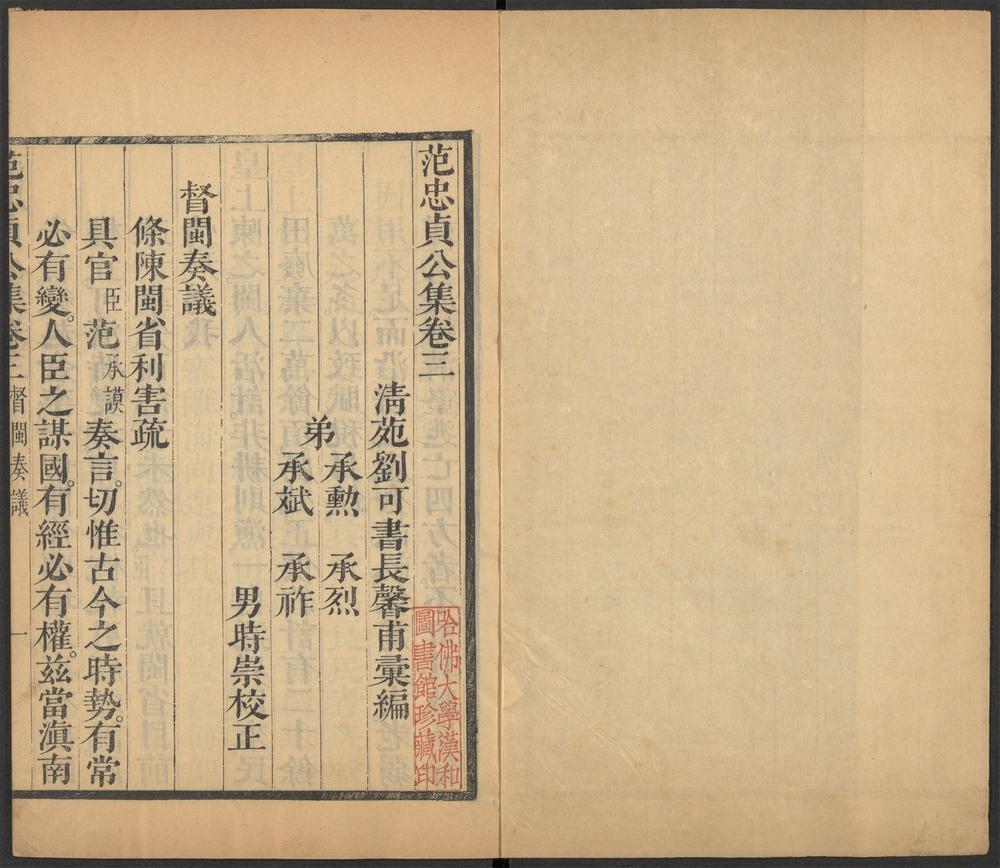 范忠貞公集卷三
清苑劉可書長馨甫彙編
弟
承勲　承烈
承斌　承祚
男時崇校正
督閩奏議
條陳閩省利害疏
具官臣范承謨奏言。切惟古今之時勢。有常
必有變。人臣之謀國。有經必有權。兹當滇南
范忠貞公集卷三 督閩奏議 一
哈佛大學漢和
圖書館珍藏印